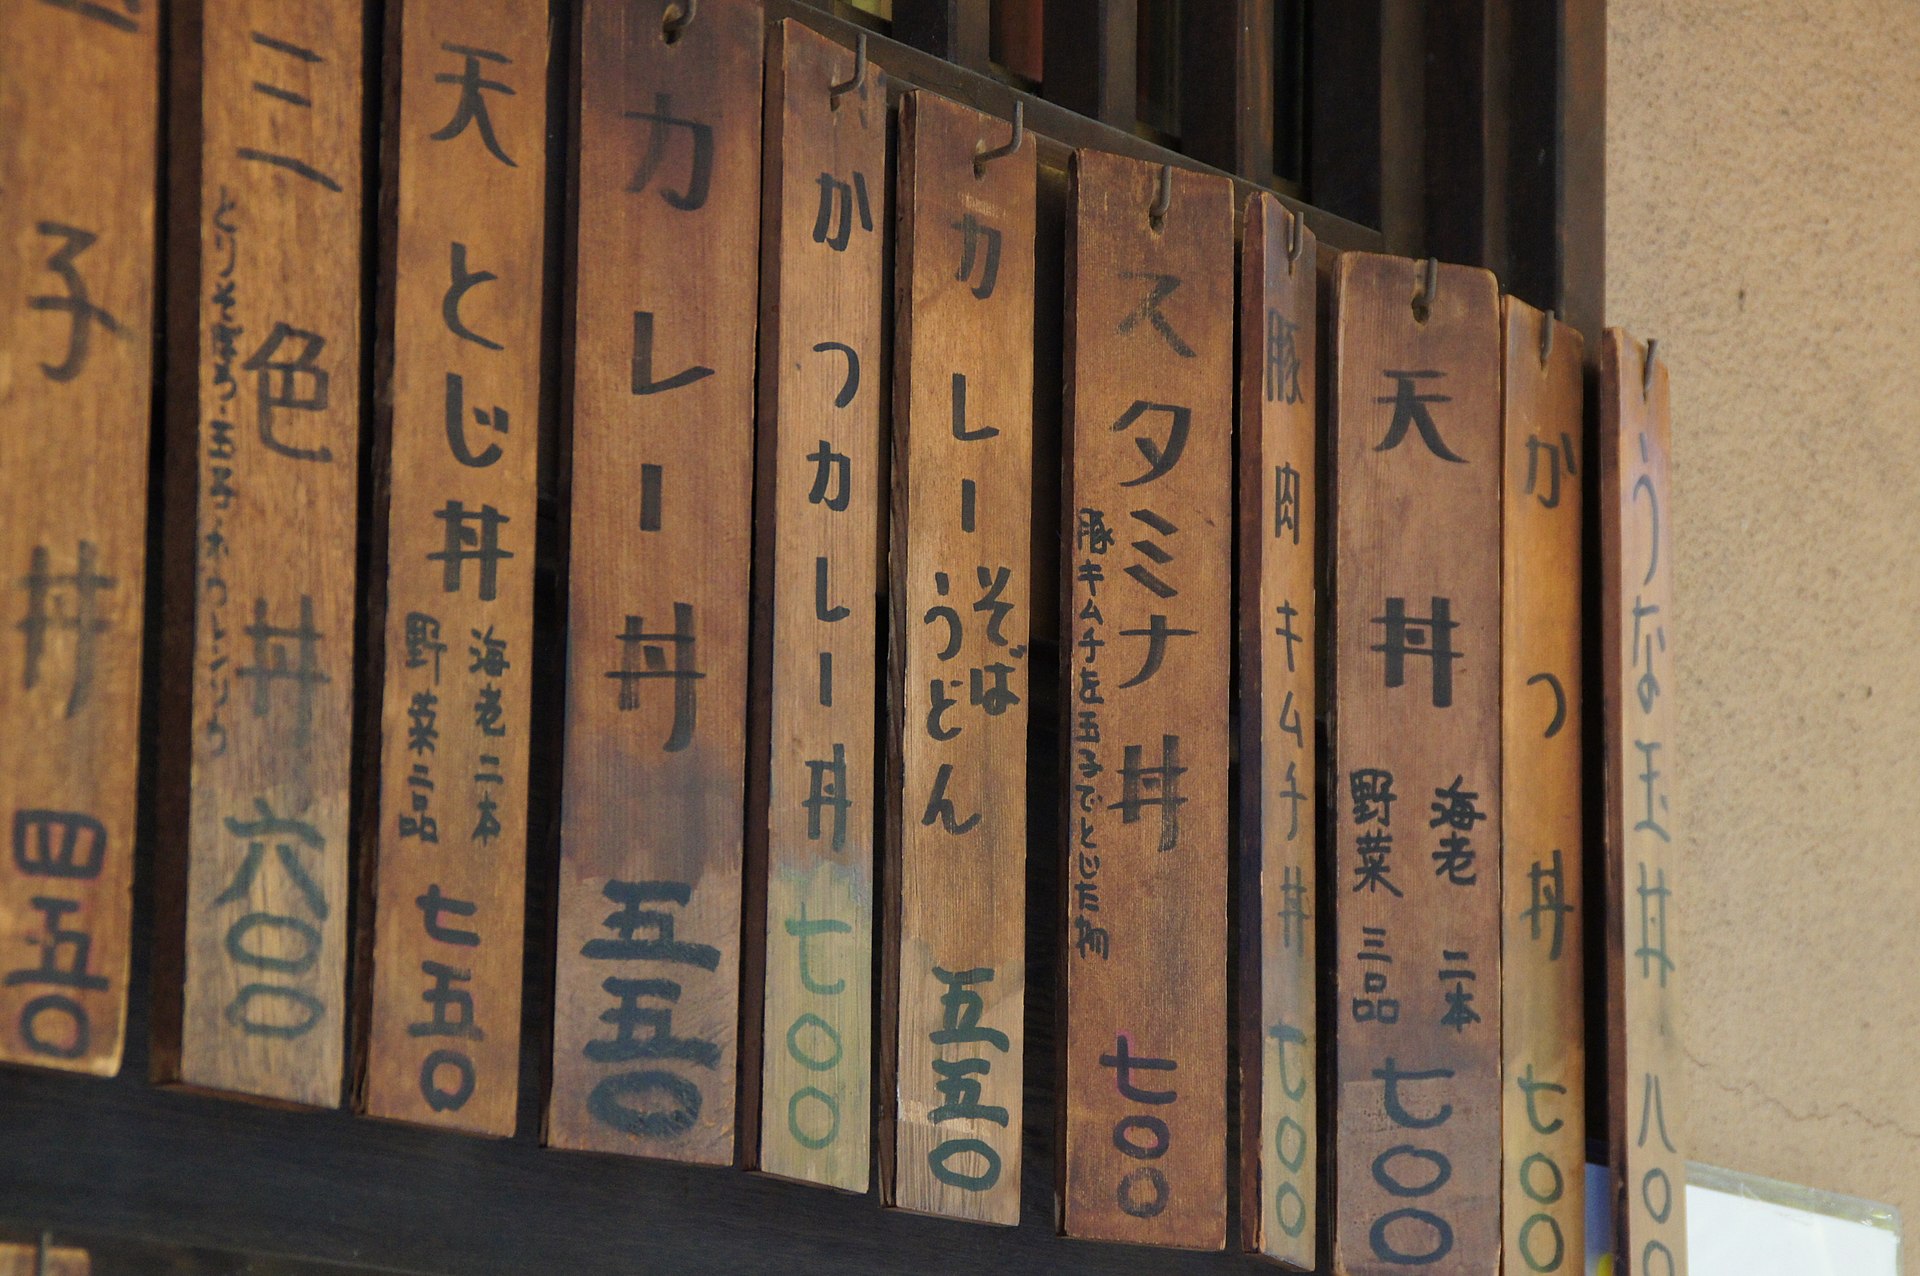 うな玉丼
八〇〇
かつ丼
七〇〇
天丼
海老二本
野菜三品
七〇〇
豚肉キムチ丼
七〇〇
スタミナ丼
豚キムチを玉子でとじた物
七〇〇
カレー
そば
うどん
五五〇
かつカレー丼
七〇〇
カレー丼
五五〇
天とじ丼
海老二本
野菜二品
七五〇
三色丼
とりそぼろ・玉子・ホウレンソウ
六〇〇
子丼
四五〇